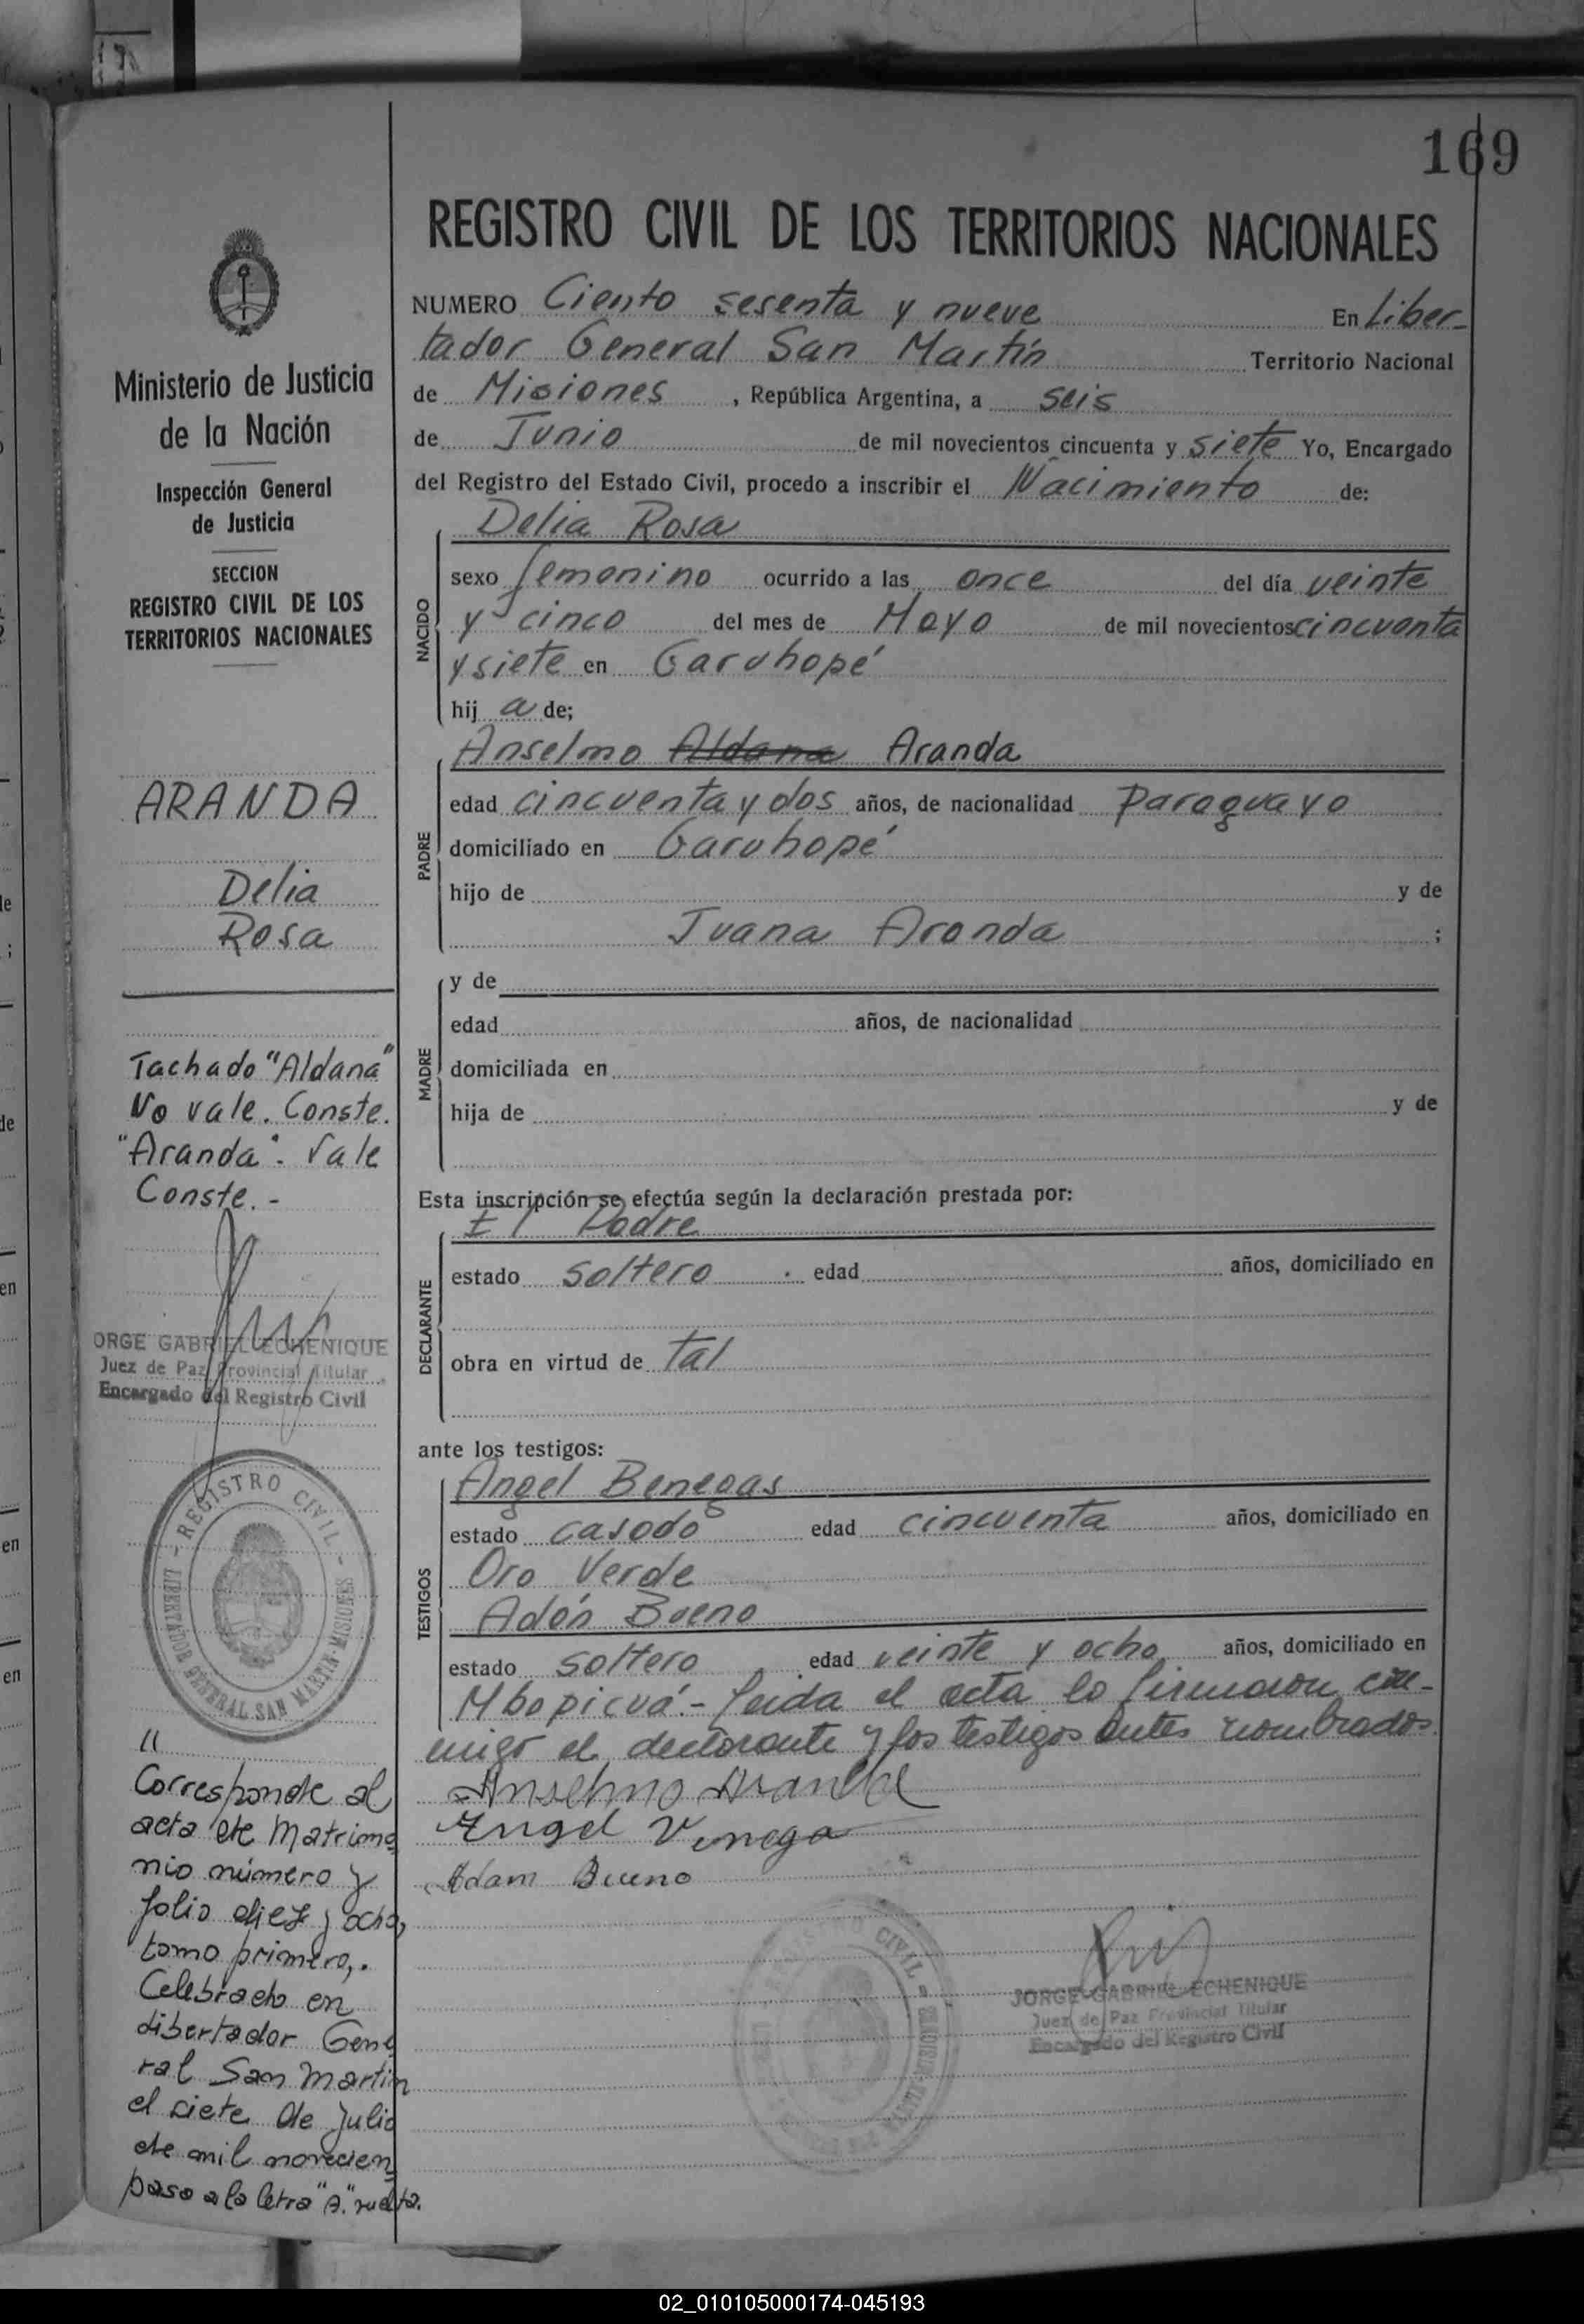 169
REGISTRO CIVIL DE LOS TERRITORIOS NACIONALES
NUMERO Ciento sesenta y nueve En Liber-
tador General San Martín Territorio Nacional
de Misiones, República Argentina, a seis
de Junio de mil novecientos cincuenta y siete Yo, Encargado
del Registro del Estado Civil, procedo a inscribir el Nacimiento de:
NACIDO
Delia Rosa
sexo femenino ocurrido a las once del día veinte
y cinco del mes de Mayo de mil novecientos cincuenta
y siete en Garuhopé
hij a de;
PADRE
Anselmo Aldana Aranda
edad cincuenta y dos años, de nacionalidad Paraguayo
domiciliado en Garuhopé
hijo de y de
Juana Aranda ;
MADRE
y de
edad años, de nacionalidad
domiciliada en
hija de y de
Esta inscripción se efectúa según la declaración prestada por:
DECLARANTE
El Padre
estado soltero . edad años, domiciliado en
obra en virtud de tal
ante los testigos:
TESTIGOS
Angel Benegas
estado casado edad cincuenta años, domiciliado en
Oro Verde
Adán Bueno
estado soltero edad veinte y ocho años, domiciliado en
Mbopicuá.- Leida el acta la firmaron con-
migo el declarante y los testigos antes nombrados
Anselmo Aranda
Angel Venega
Adam Bueno
REGISTRO CIVIL
JORGE GABRIEL ECHENIQUE
Juez de Paz Provincial Titular
Encargado del Registro Civil
Ministerio de Justicia
de la Nación
Inspección General
de Justicia
SECCION
REGISTRO CIVIL DE LOS
TERRITORIOS NACIONALES
ARANDA
Delia
Rosa
Tachado "Aldana"
No vale. Conste.
"Aranda". Vale
Conste.-
ORGE GABRIEL ECHENIQUE
Juez de Paz Provincial Titular
Encargado del Registro Civil
- REGISTRO CIVIL -
LIBERTADOR GENERAL SAN MARTIN-MISIONES
//
Corresponde al
acta de Matrimo
nio número y
folio diez y ocho,
tomo primero,.
Celebrado en
Libertador Gene
ral San Martin
el siete de Julio
de mil novecien
paso a la letra "A." vuelta.
02_010105000174-045193